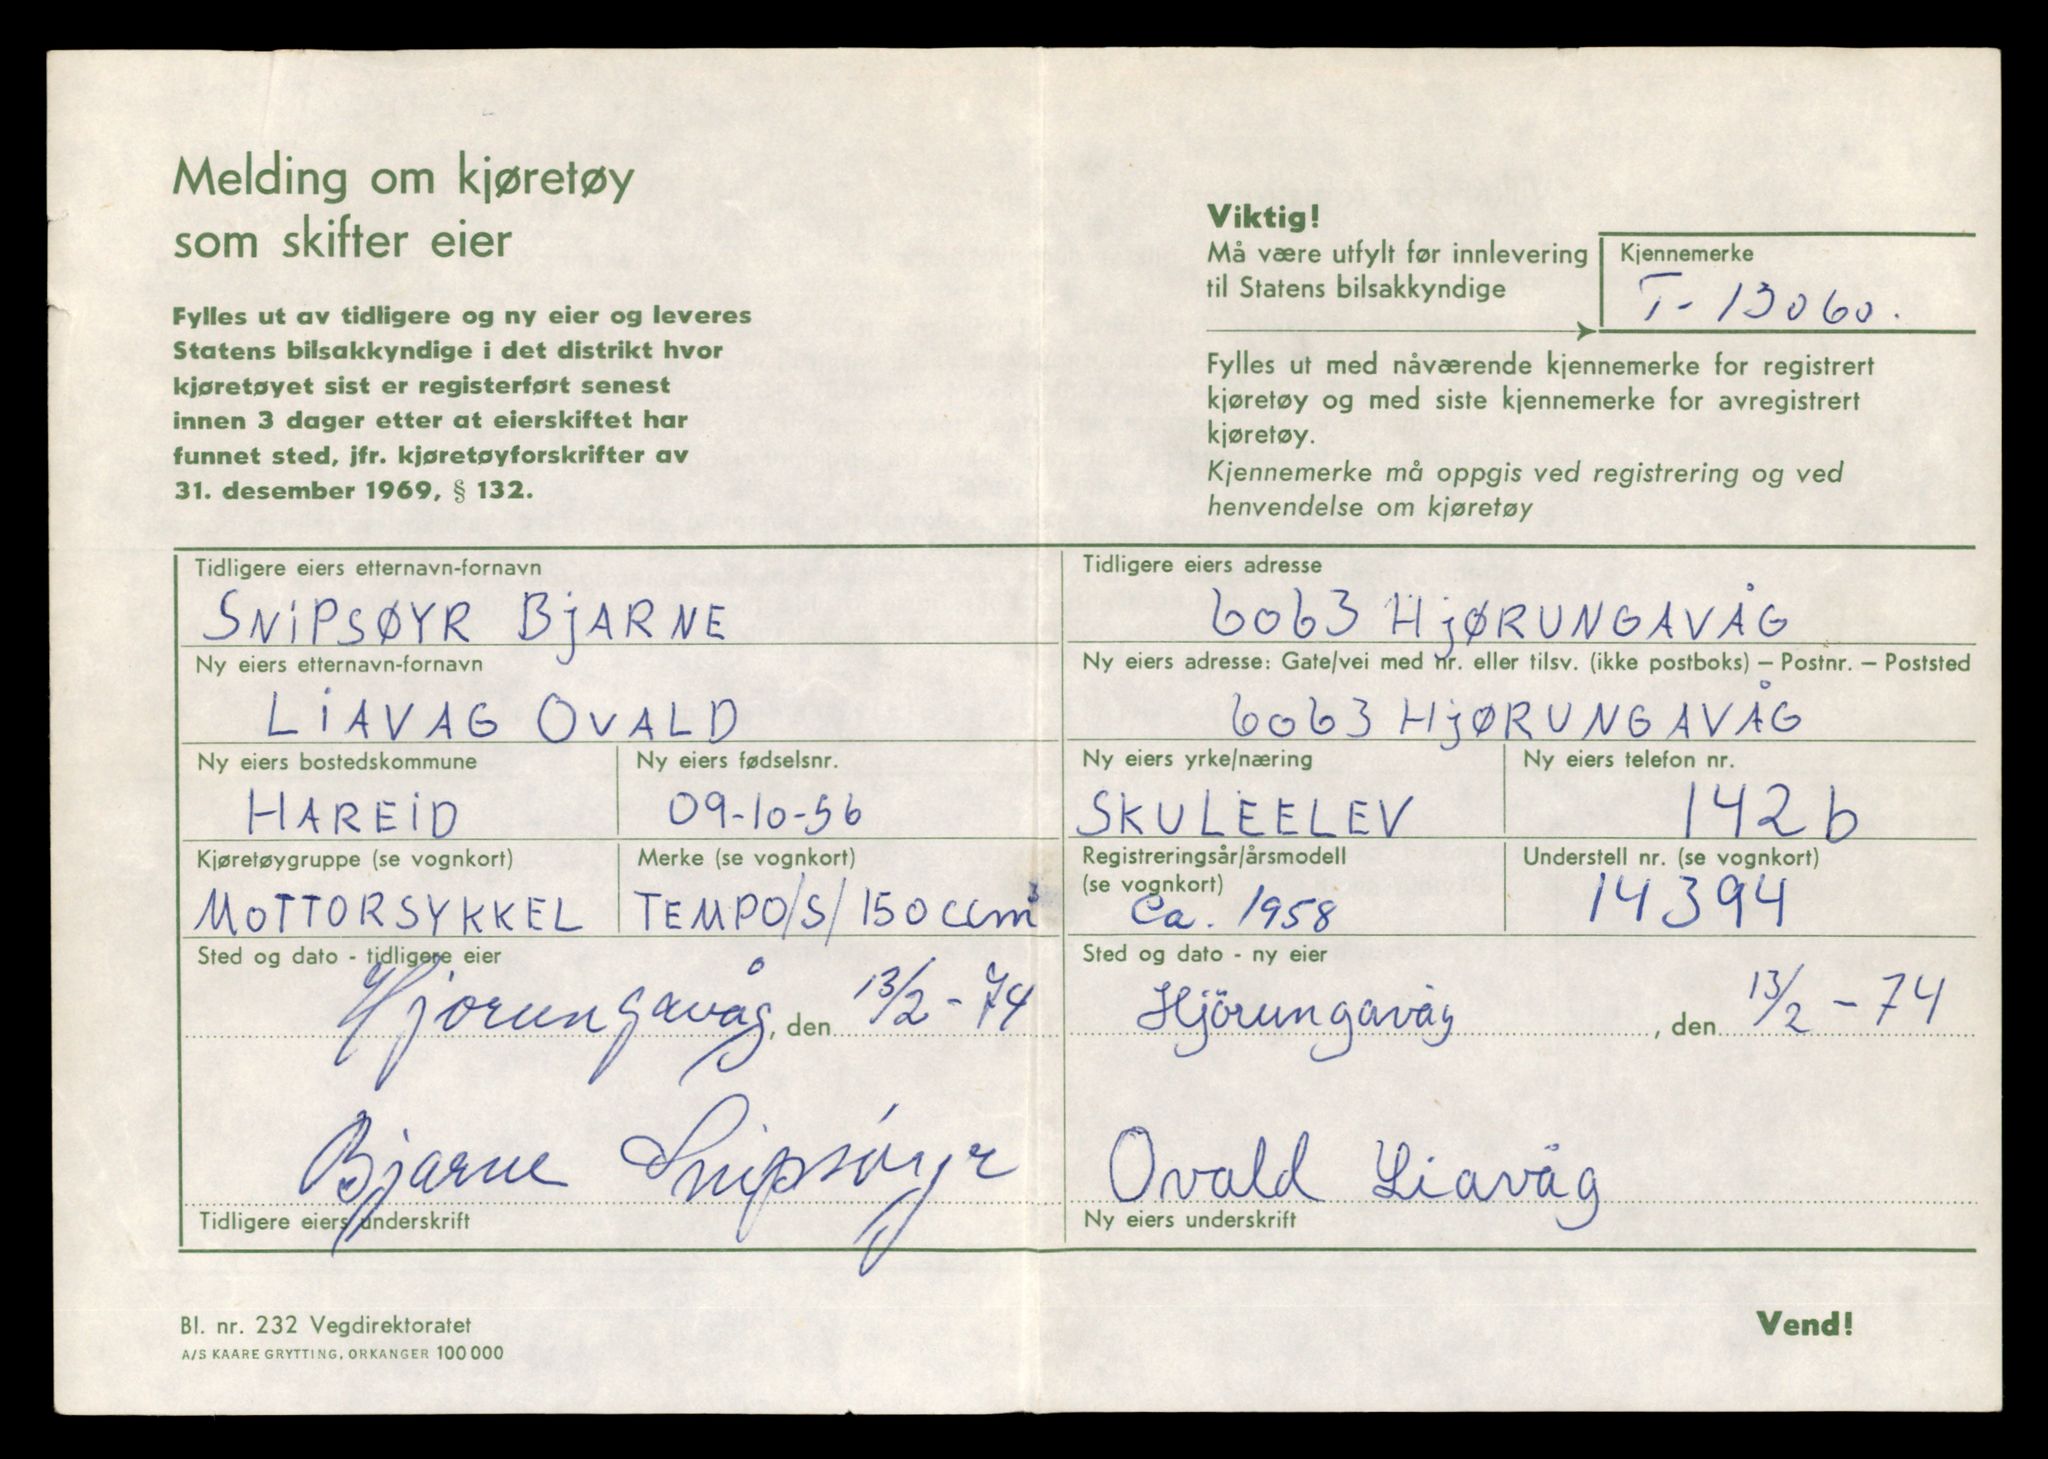 Melding om kjøretøy
som skifter eier
Fylles ut av tidligere og ny eier og leveres
Statens bilsakkyndige i det distrikt hvor
kjøretøyet sist er registerført senest
innen 3 dager etter at eierskiftet har
funnet sted, jfr. kjøretøyforskrifter av
31. desember 1969, § 132.
Viktig!
Må være utfylt før innlevering
til Statens bilsakkyndige
Kjennemerke
T-13060.
Fylles ut med nåværende kjennemerke for registrert
kjøretøy og med siste kjennemerke for avregistrert
kjøretøy.
Kjennemerke må oppgis ved registrering og ved
henvendelse om kjøretøy
Tidligere eiers etternavn-fornavn
SNIPSØYR BJARNE
Tidligere eiers adresse
6063 HJØRUNGAVÅG
Ny eiers etternavn-fornavn
LIAVAG OVALD
Ny eiers adresse: Gate/vei med nr. eller tilsv. (ikke postboks) – Postnr. – Poststed
6063 HJØRUNGAVÅG
Ny eiers bostedskommune
HAREID
Ny eiers fødselsnr.
09-10-56
Ny eiers yrke/næring
SKULEELEV
Ny eiers telefon nr.
142 b
Kjøretøygruppe (se vognkort)
MOTTORSYKKEL
Merke (se vognkort)
TEMPO/S/150 ccm³
Registreringsår/årsmodell
(se vognkort)
Ca. 1958
Understell nr. (se vognkort)
14394
Sted og dato - tidligere eier
Hjorungavåg, den 13/2-74
Sted og dato - ny eier
Hjörungavåg, den 13/2-74
Bjarne Snipsóyr
Tidligere eiers underskrift
Ovald Liavåg
Ny eiers underskrift
Bl. nr. 232 Vegdirektoratet
A/S KAARE GRYTTING, ORKANGER 100 000
Vend!